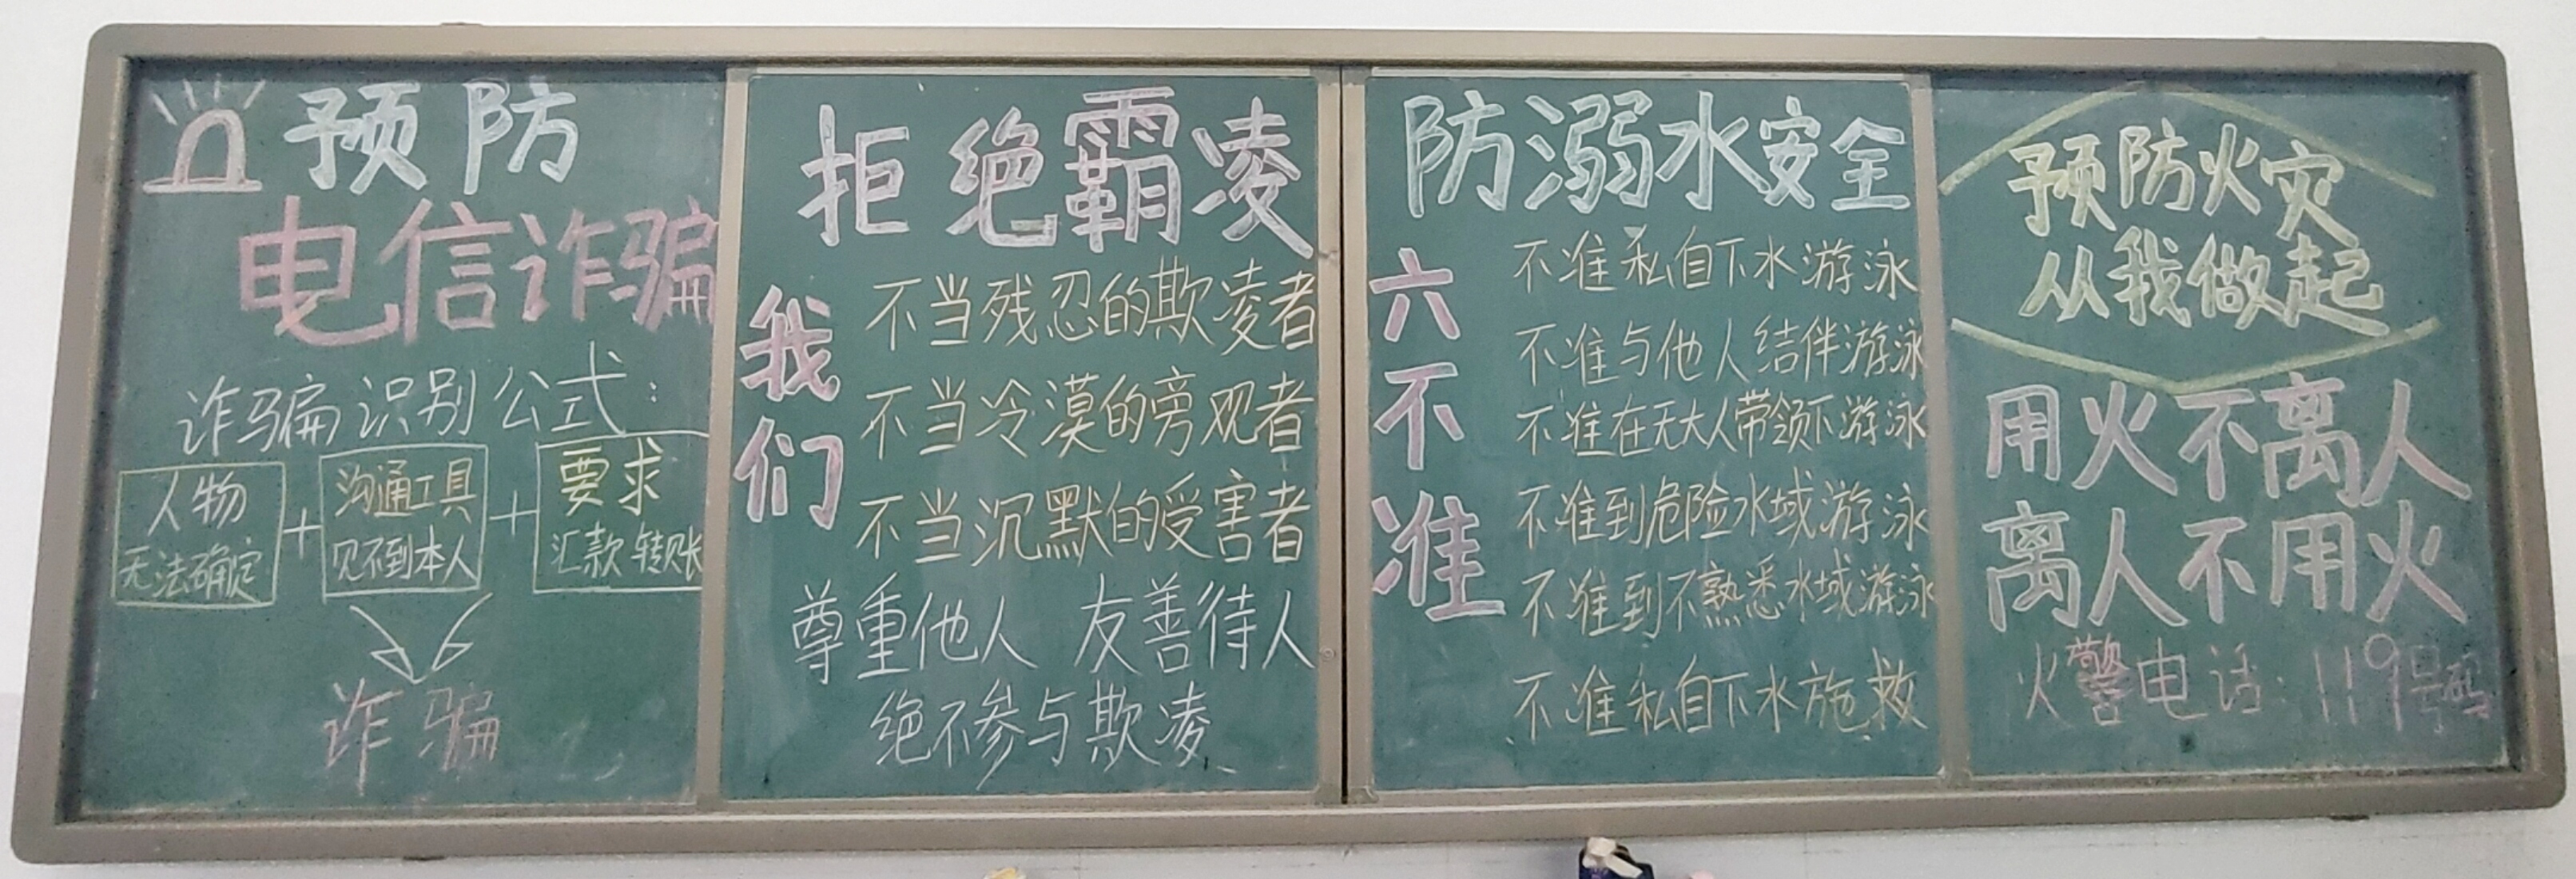 预防
电信诈骗
诈骗识别公式：
人物
无法确定
+
沟通工具
见不到本人
+
要求
汇款 转账
诈骗
拒绝霸凌
我们
不当残忍的欺凌者
不当冷漠的旁观者
不当沉默的受害者
尊重他人 友善待人
绝不参与欺凌
防溺水安全
六不准
不准私自下水游泳
不准与他人结伴游泳
不准在无大人带领下游泳
不准到危险水域游泳
不准到不熟悉水域游泳
不准私自下水施救
预防火灾
从我做起
用火不离人
离人不用火
火警电话：119号码